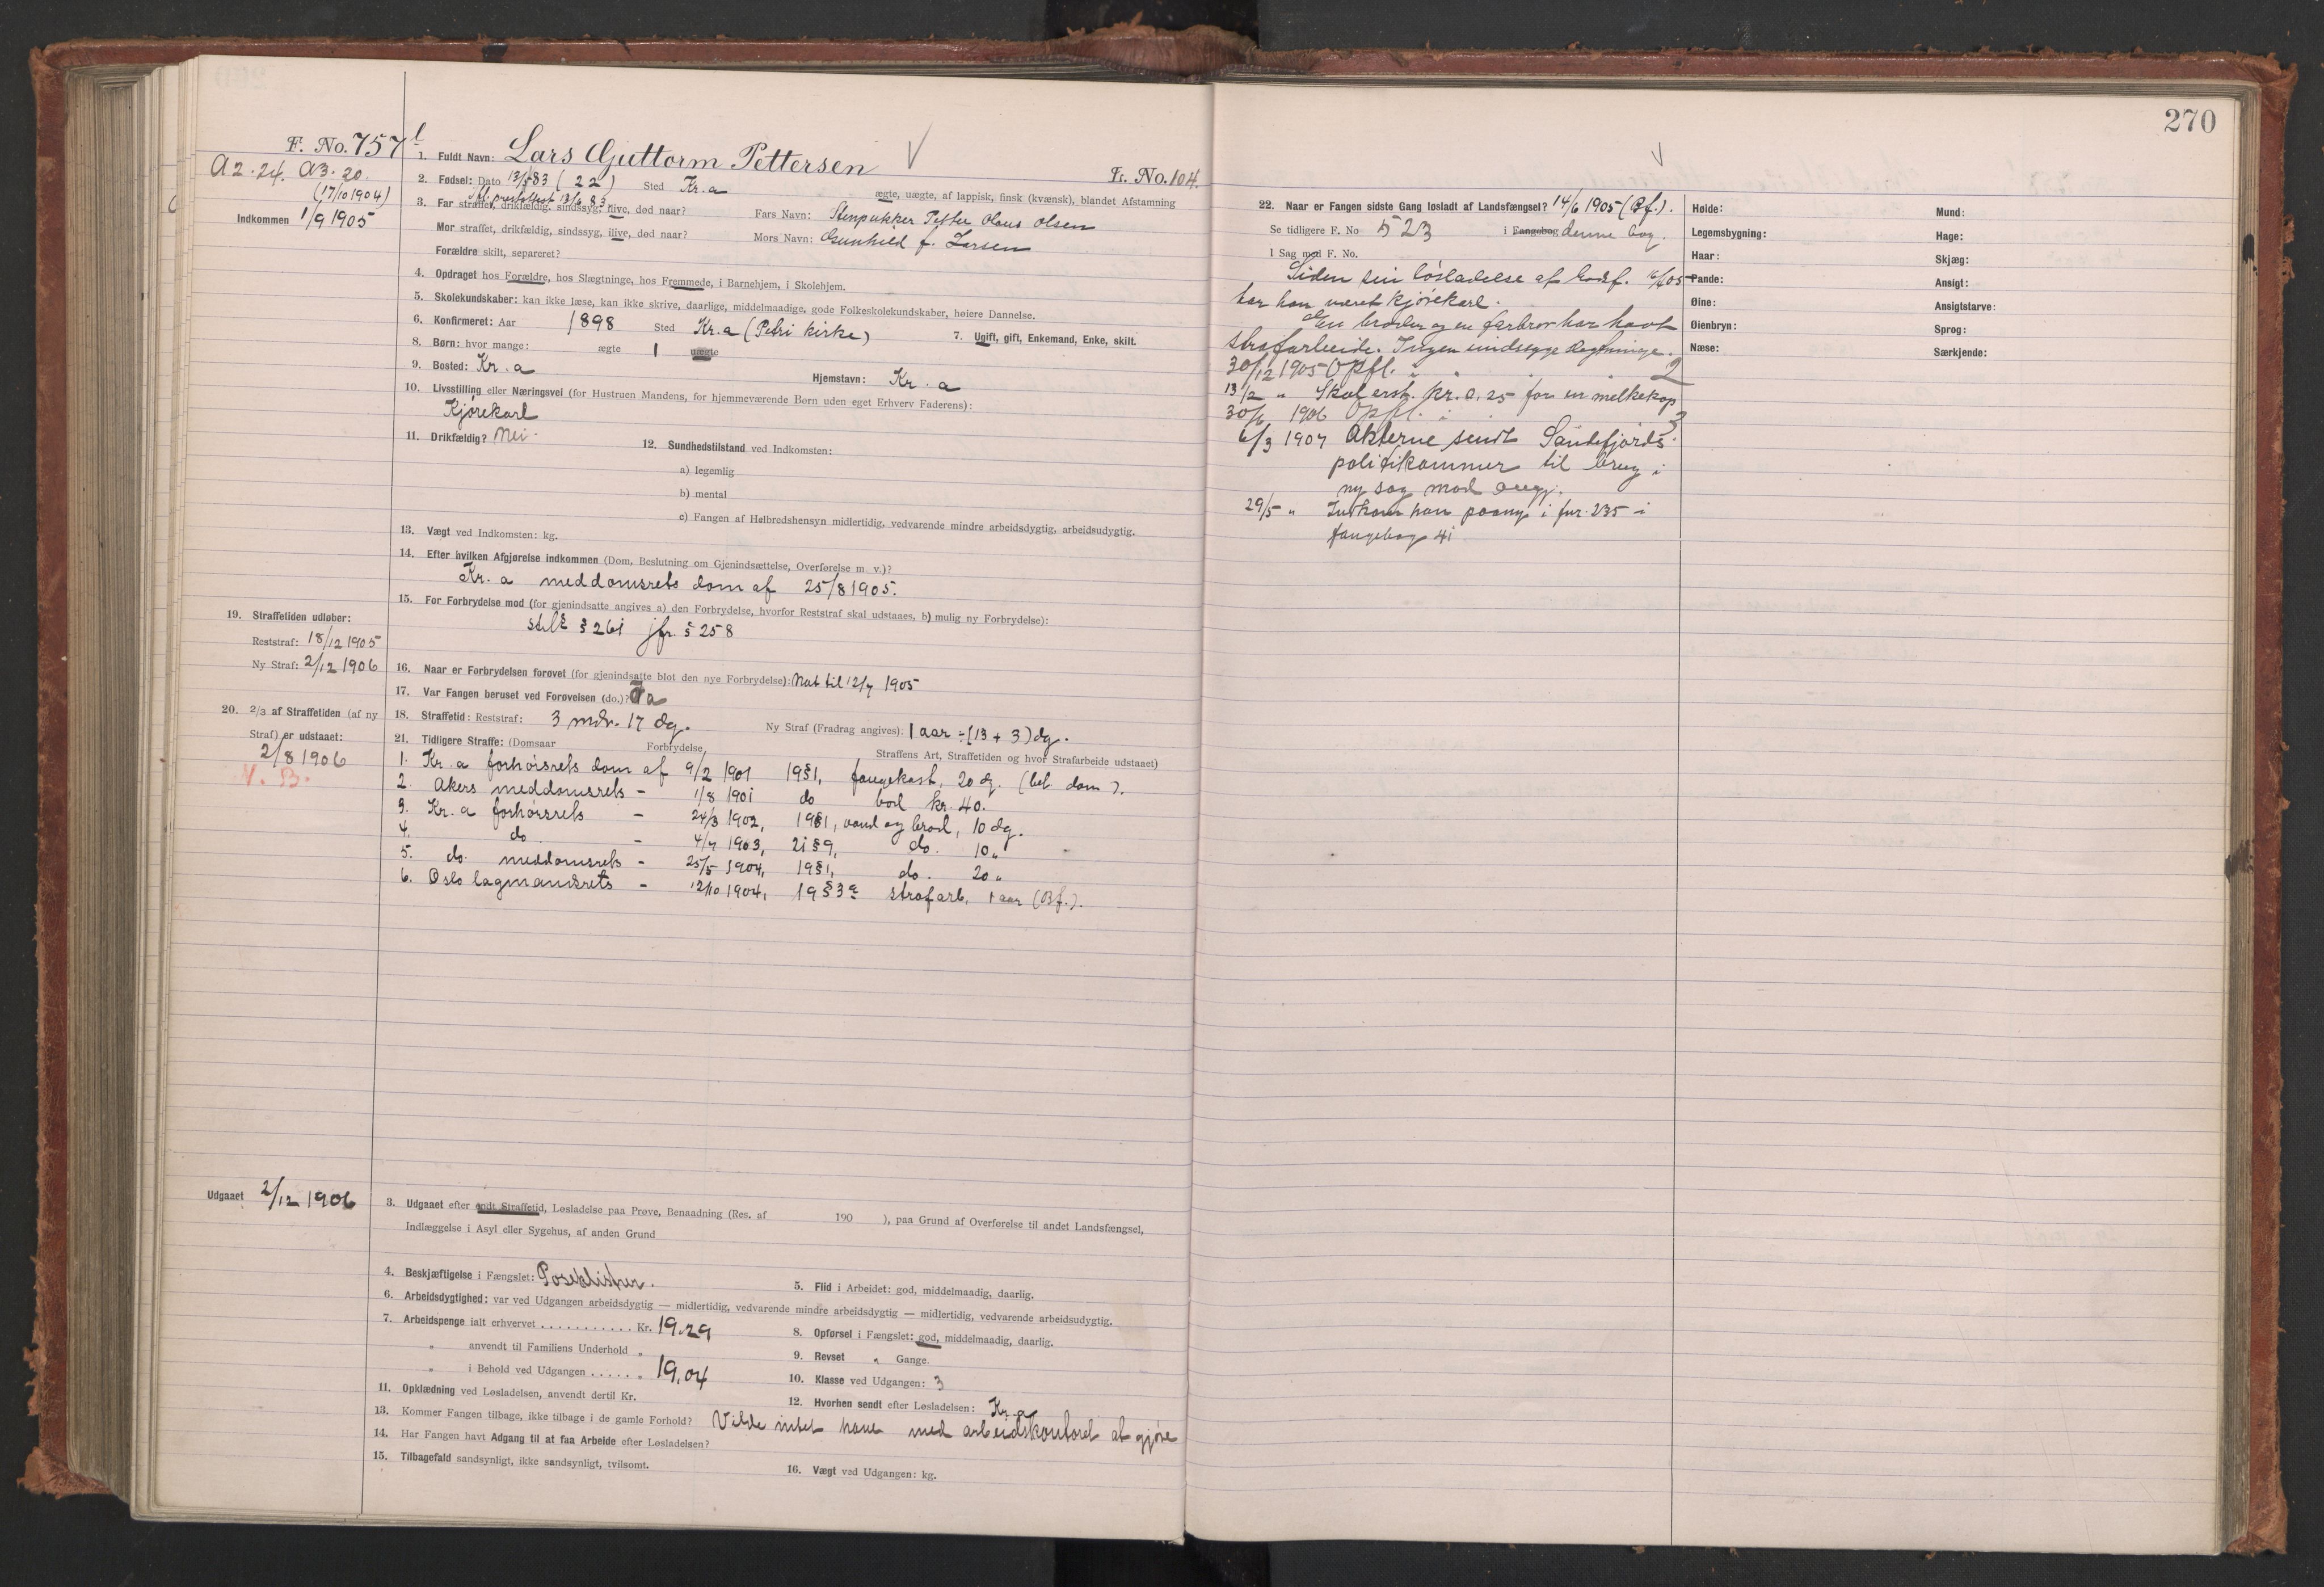 F. No. 757
A2.24. A3.20.
(17/10 1904)
Indkommen 1/9 1905
1. Fuldt Navn: Lars Guttorm Pettersen
Fr. No. 104.
2. Fødsel: Dato 13/5 83 (22) Sted Kr.a ægte, uægte, af lappisk, finsk (kvænsk), blandet Afstamning
3. Far straffet, drikfældig, sindssyg, ilive, død nu? Fars Navn: Stenpukker Petter Olaus Olsen
Mor straffet, drikfældig, sindssyg, ilive, død nu? Mors Navn: Gunhild f. Larsen
Forældre skilt, separeret?
4. Opdraget hos Forældre, hos Slægtninge, hos Fremmede, i Barnehjem, i Skolehjem.
5. Skolekundskaber: kan ikke læse, kan ikke skrive, daarlige, middelmaadige, gode Folkeskolekundskaber, høiere Dannelse.
6. Konfirmeret: Aar 1898 Sted Kr.a (Petri kirke) 7. Ugift, gift, Enkemand, Enke, skilt.
8. Børn: hvor mange: ægte 1 uægte
9. Bosted: Kr.a Hjemstavn: Kr.a
10. Livsstilling eller Næringsvei (for Hustruen Mandens, for hjemmeværende Børn uden eget Erhverv Faderens):
Kjørekarl
11. Drikfældig? Nei. 12. Sundhedstilstand ved Indkomsten:
a) legemlig
b) mental
c) Fangen af Helbredshensyn midlertidig, vedvarende mindre arbeidsdygtig, arbeidsudygtig.
13. Vægt ved Indkomsten: kg.
14. Efter hvilken Afgjørelse indkommen (Dom, Beslutning om Gjenindsættelse, Overførelse m. v.)?
Kr.a meddomsrets dom af 25/8 1905.
15. For Forbrydelse mod (for gjenindsatte angives a) den Forbrydelse, hvorfor Reststraf skal udstaaes, b) mulig ny Forbrydelse):
strl. § 261 jfr. § 258
19. Straffetiden udløber:
Reststraf: 18/12 1905
Ny Straf: 2/12 1906
16. Naar er Forbrydelsen forøvet (for gjenindsatte blot den nye Forbrydelse): Nat til 12/7 1905
17. Var Fangen beruset ved Forøvelsen (do.)? Ja
20. 2/3 af Straffetiden (af ny
Straf) er udstaaet:
2/8 1906
V. B.
18. Straffetid: Reststraf: 3 mdr. 17 dg. Ny Straf (Fradrag angives): 1 aar ÷ (13 + 3) dg.
21. Tidligere Straffe: (Domsaar Forbrydelse, Straffens Art, Straffetiden og hvor Strafarbeide udstaaet)
1. Kr.a forhørsrets dom af 9/2 1901 19§1, fangekost, 20 dg. (bet. dom).
2. Akers meddomsrets - 1/8 1901 do bod kr. 40.
3. Kr.a forhørsrets - 24/3 1902, 19§1, vand og brød, 10 dg.
4. do - 4/7 1903, 21§9, do. 10 "
5. do. meddomsrets - 25/5 1904, 19§1, do. 20 "
6. Oslo lagmandsrets - 12/10 1904, 19§3a strafarb. 1 aar (Bf.).
Udgaaet 2/12 1906
3. Udgaaet efter endt Straffetid, Løsladelse paa Prøve, Benaadning (Res. af 190 ), paa Grund af Overførelse til andet Landsfængsel,
Indlæggelse i Asyl eller Sygehus, af anden Grund
4. Beskjæftigelse i Fængslet: Poseklistrer. 5. Flid i Arbeidet: god, middelmaadig, daarlig.
6. Arbeidsdygtighed: var ved Udgangen arbeidsdygtig — midlertidig, vedvarende mindre arbeidsdygtig — midlertidig, vedvarende arbeidsudygtig.
7. Arbeidspenge ialt erhvervet ........... Kr. 19.29 8. Opførsel i Fængslet: god, middelmaadig, daarlig.
" anvendt til Familiens Underhold " 9. Revset " Gange.
" i Behold ved Udgangen ...... " 19,04 10. Klasse ved Udgangen: 3
11. Opklædning ved Løsladelsen, anvendt dertil Kr. 12. Hvorhen sendt efter Løsladelsen: Kr.a
13. Kommer Fangen tilbage, ikke tilbage i de gamle Forhold? Vilde intet have med arbeidskontoret at gjøre
14. Har Fangen havt Adgang til at faa Arbeide efter Løsladelsen?
15. Tilbagefald sandsynligt, ikke sandsynligt, tvilsomt. 16. Vægt ved Udgangen: kg.
270
22. Naar er Fangen sidste Gang løsladt af Landsfængsel? 14/6 1905 (Bf.).
Se tidligere F. No 523 i Fangebog denne bog.
I Sag med F. No.
Siden sin løsladelse af Bodsf. 14/6 05
har han været kjørekarl.
En broder og en farbror har havt
strafarbeide. Ingen sindssyge slegtninge.
30/12 1905 Opfl. 2
13/2 " Skal erst. kr. 0.25 for en melkekop
30/6 1906 Opfl. 3
6/3 1907 Akterne sendt Sandefjords
politikammer til brug i
ny sag mod angj.
29/5 " Indkom han paany i fnr. 235 i
fangebog 41
Høide: Mund:
Legemsbygning: Hage:
Haar: Skjæg:
Pande: Ansigt:
Øine: Ansigtstarve:
Øienbryn: Sprog:
Næse: Særkjende: